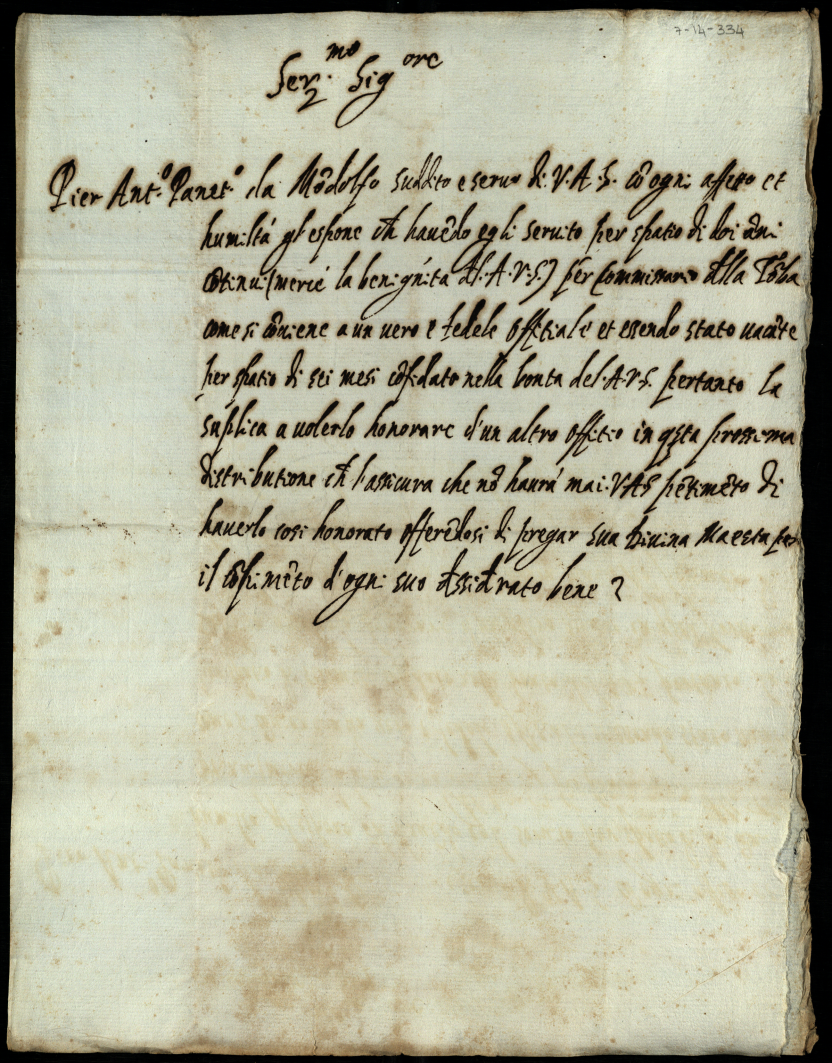 7-14-334
Ser.mo Sigore
Pier Ant.o Panet.o da Mõdolfo suddito e servo di V.A.S. cõ ogni affetto et
humiltà gl'espone ch' havẽdo egli servito per spatio di doi ãni
cõtinui (mercè la benignità dl.A.V.S.) per Commissario dlla Tõba
come si cõviene a un vero e fedele offitiale et essendo stato vacãte
per spatio di sei mesi cõfidato nella bontà del.A.V.S. pertanto la
suplica a volerlo honorare d'un altro offitio in qsta prossima
distributione ch' l'assicura che nõ haurà mai V.A.S. pẽtimẽto di
haverlo così honorato offerẽdosi di pregar sua Divina Maestà per
il cõpimẽto d'ogni suo dssidrato bene